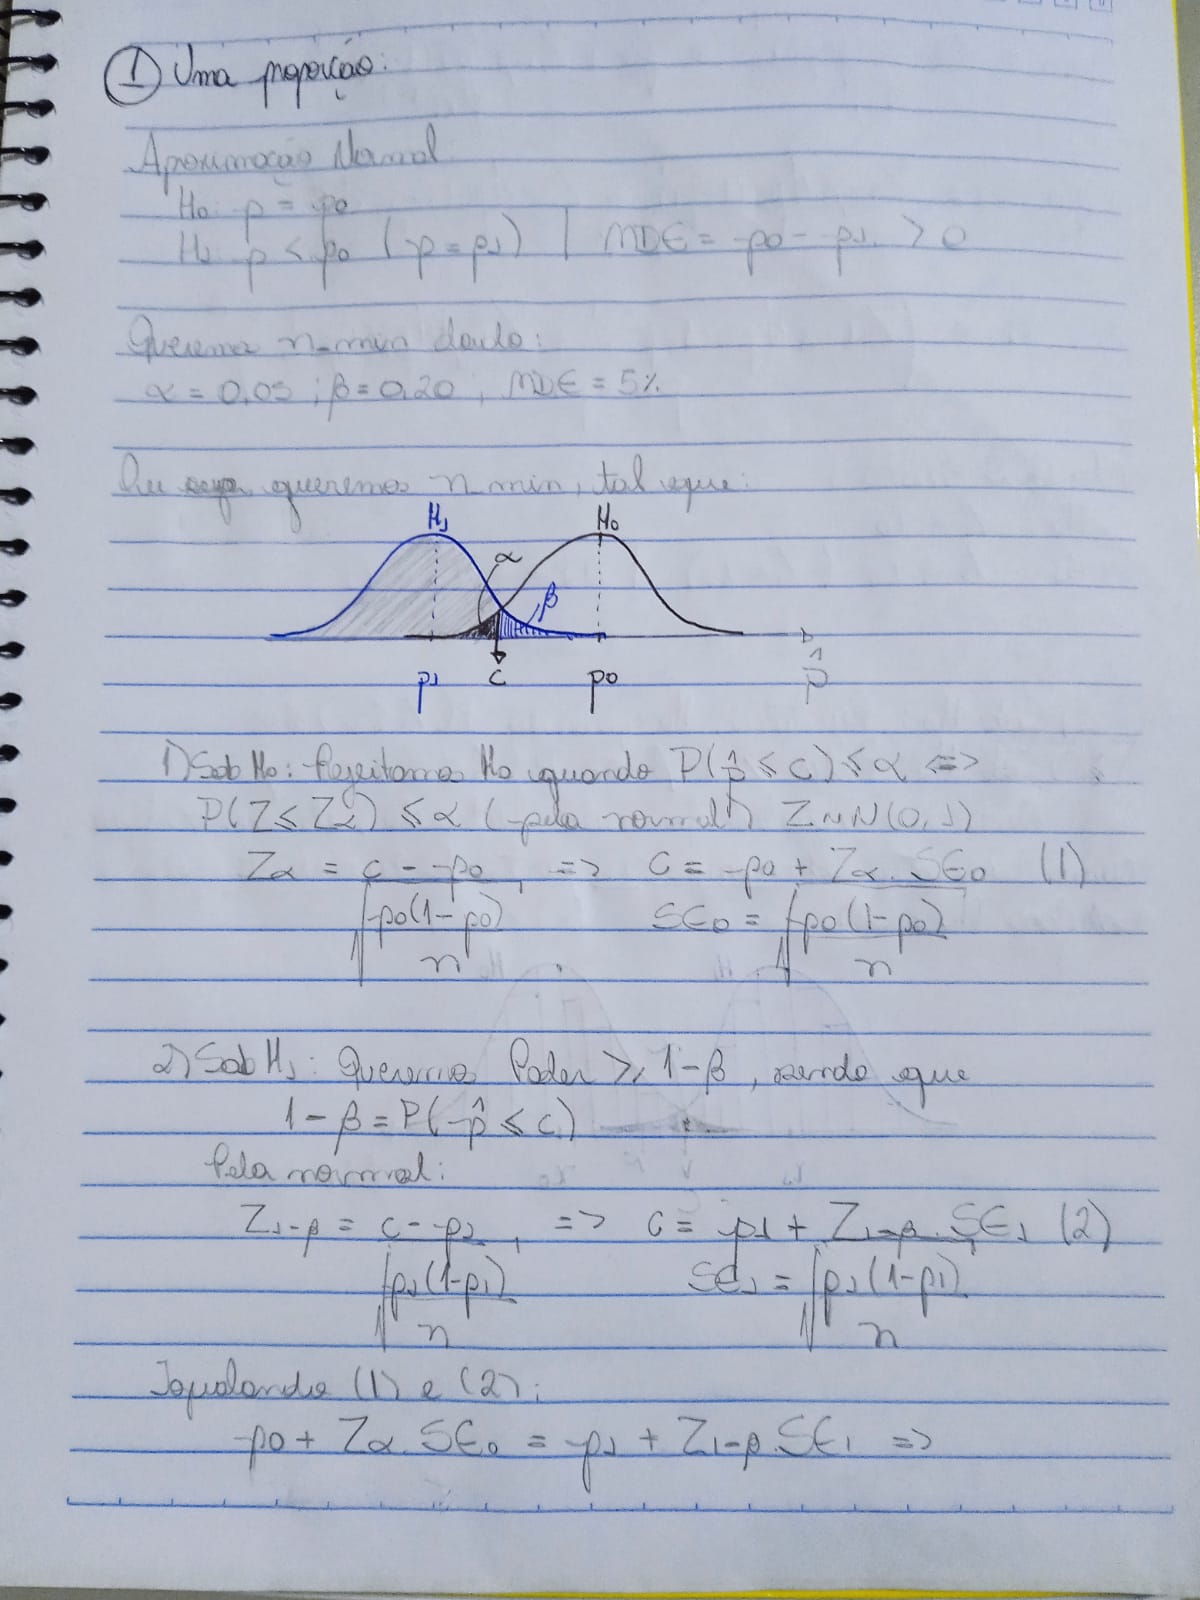 ① Uma proporção:
Aproximação Normal
H₀: p = p₀
H₁: p < p₀ (p = p₁) | MDE = p₀ - p₁ > 0
Queremos n_min dado:
α = 0,05 ; β = 0,20 , MDE = 5%
Ou seja, queremos n min, tal que:
H₁ H₀
α
β
p₁ c p₀ p̂
1) Sob H₀: Rejeitamos H₀ quando P(p̂ ≤ c) ≤ α <=>
P(Z ≤ Zα) ≤ α (pela normal) Z ~ N(0,1)
Zα = (c - p₀) / √(p₀(1-p₀)/n) , => c = p₀ + Zα . SE₀ (1)
SE₀ = √(p₀(1-p₀)/n)
2) Sob H₁: Queremos Poder ≥ 1-β, sendo que
1 - β = P(p̂ ≤ c)
Pela normal:
Z₁-β = (c - p₁) / √(p₁(1-p₁)/n) , => c = p₁ + Z₁-β . SE₁ (2)
SE₁ = √(p₁(1-p₁)/n)
Igualando (1) e (2):
p₀ + Zα . SE₀ = p₁ + Z₁-β . SE₁ =>